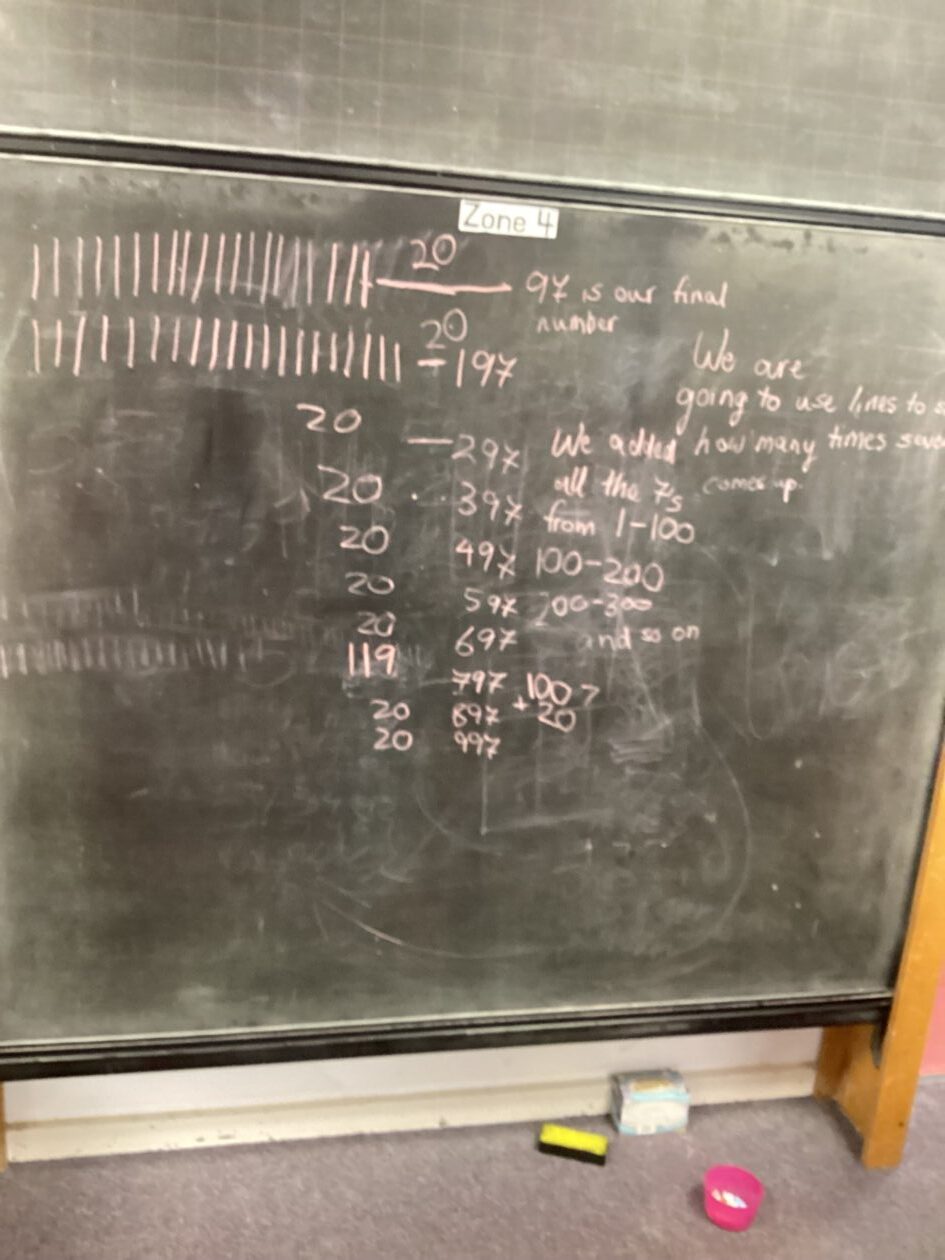 Zone 4
20
97 is our final
number
20
- 197
We are
going to use lines to
how many times
comes up.
20
- 297
We added
all the 7s
from 1-100
100-200
200-300
and so on
20 397
20 497
20 597
20 697
119 797
100
+ 20
20 897
20 997